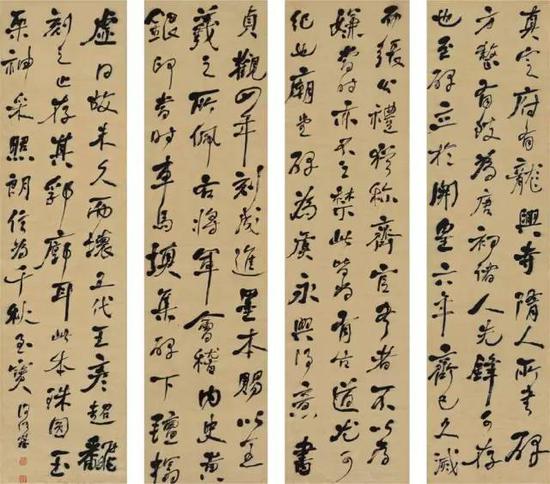 真定府有龍興寺隋人所書碑
方整有致為唐初諸人先鋒可存
也至碑立於開皇六年齊已久滅
而張公禮猶稱齊官書者不以為
嫌當時亦不之禁此皆尚有古道尤可
紀也廟堂碑為虞永興得意書
貞觀四年刻成進墨本賜以王
羲之所佩右將軍會稽內史黃
銀印當時車馬填集碑下氊搨
虛日故未久而壞五代王彥超翻
刻之止存其郛廓耳此本珠圓玉
栗神采照朗信為千秋至寶 何紹基